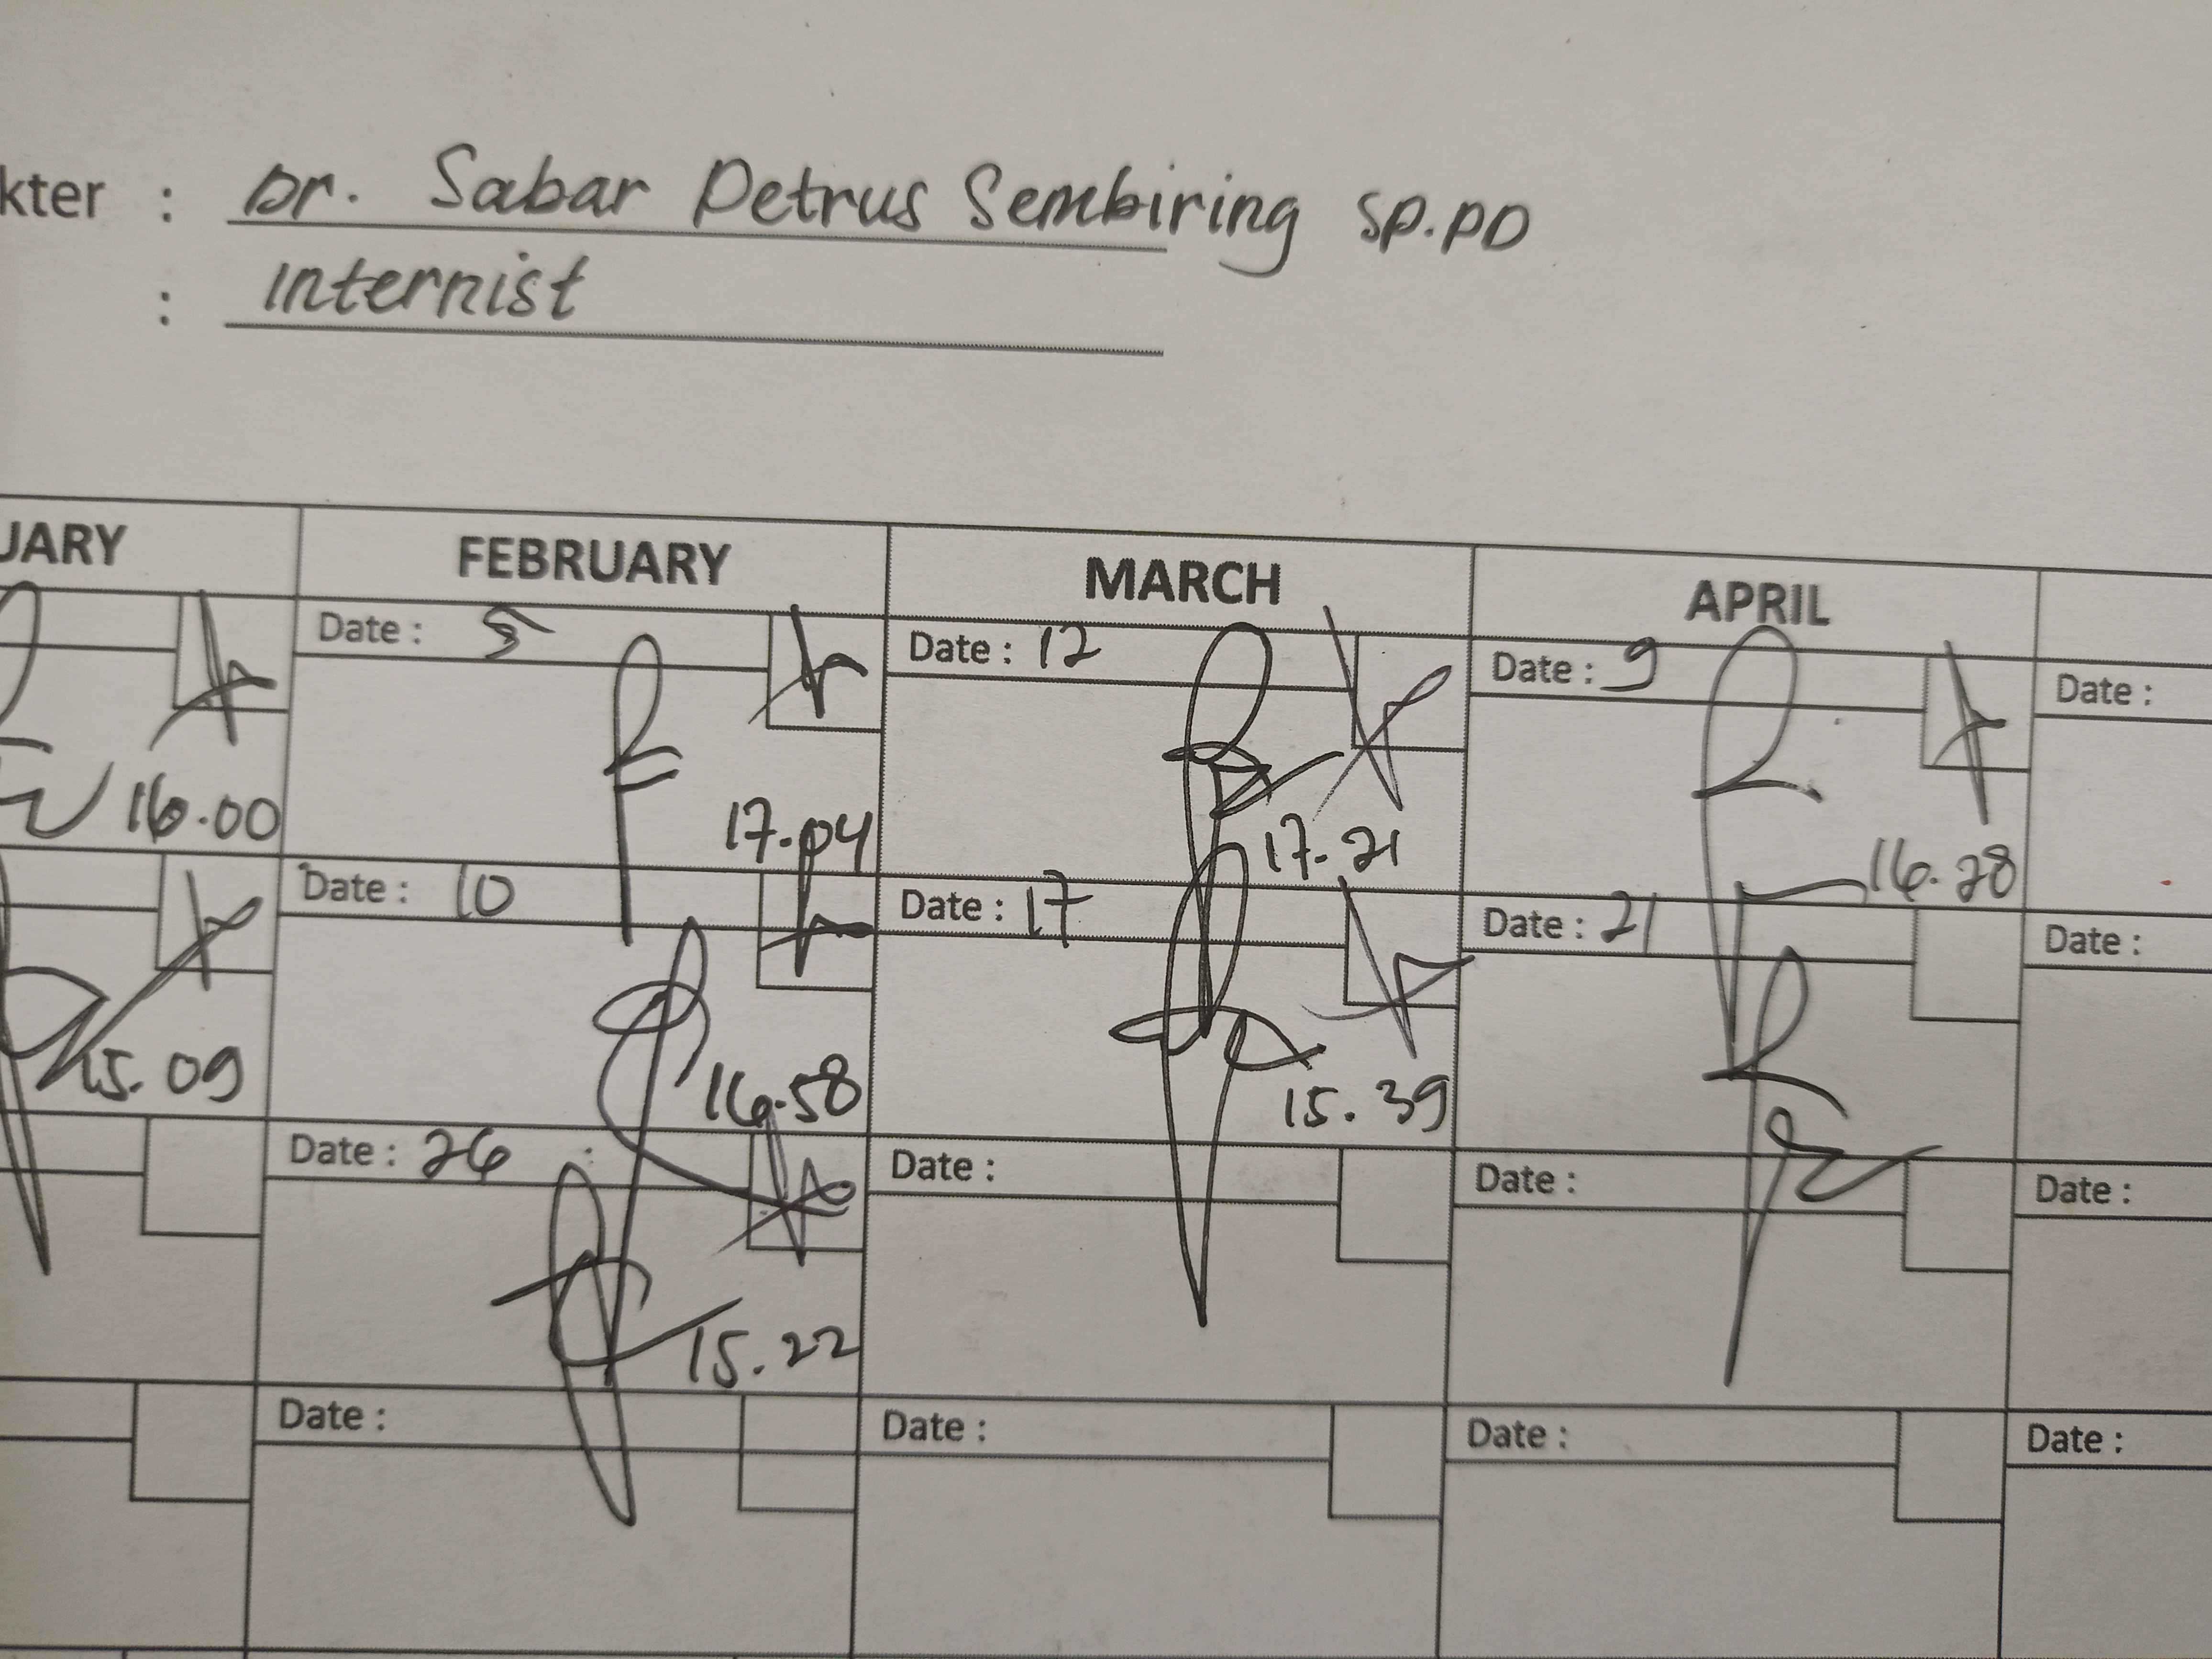 kter : Dr. Sabar Petrus Sembiring Sp.PD
: Internist
UARY FEBRUARY MARCH APRIL
Date : 5 Date : 12 Date : 9 Date :
16.00 17.04 17.21 16.28
Date : 10 Date : 17 Date : 21 Date :
15.09 16.58 15.39
Date : 26 Date : Date : Date :
15.22
Date : Date : Date : Date :